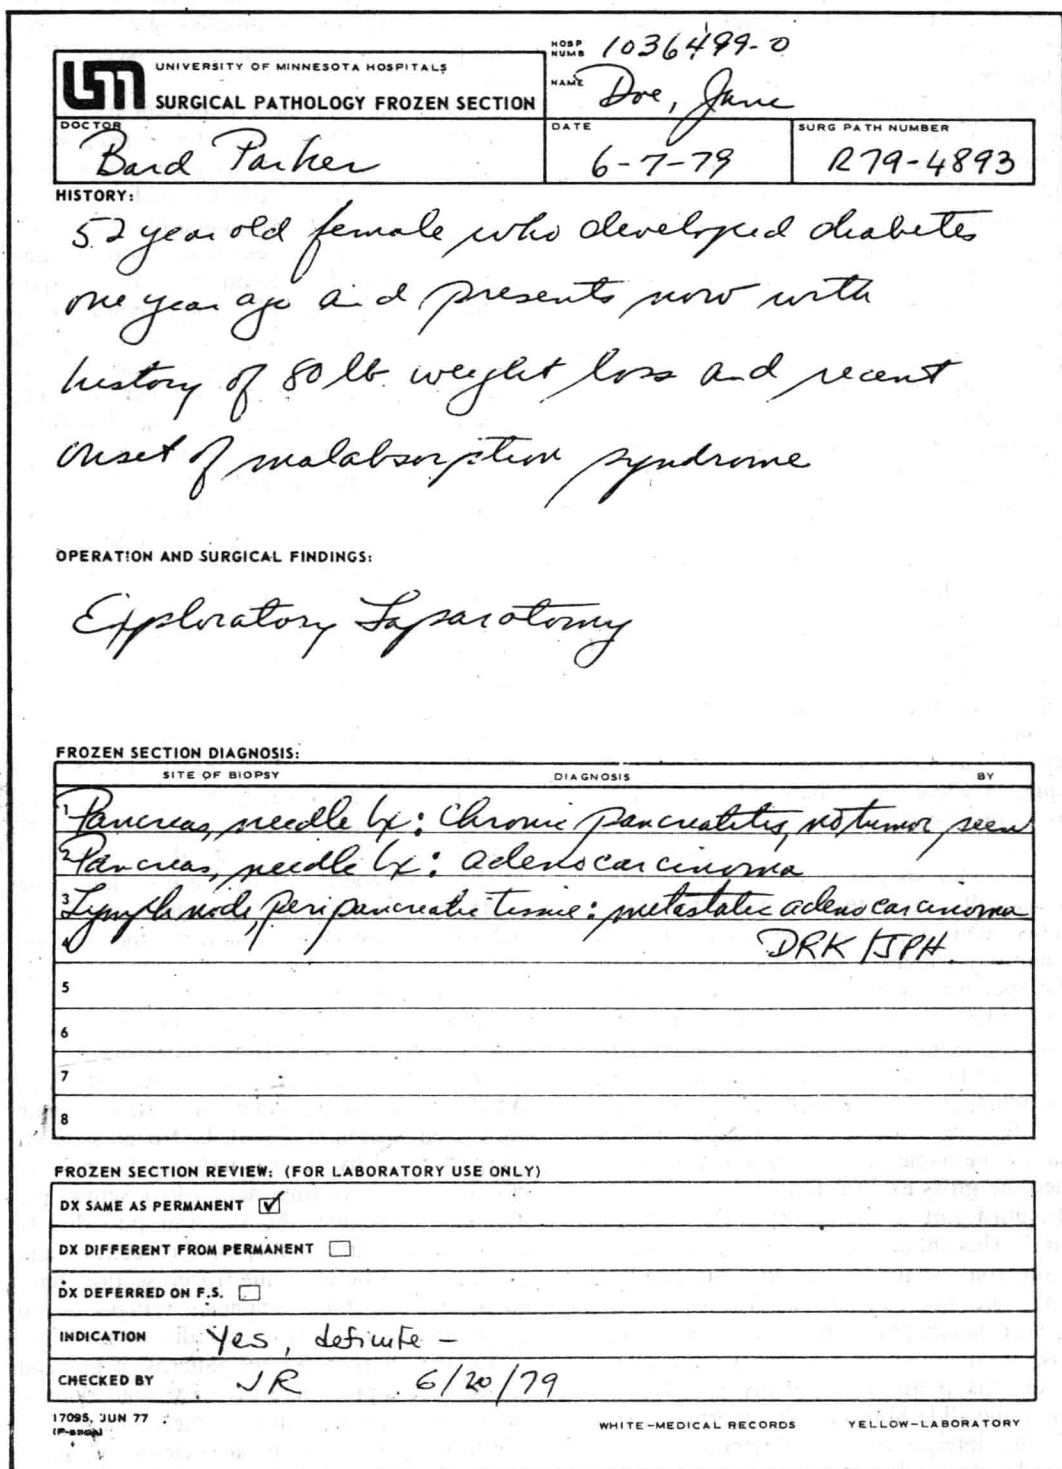 HOSP NUMB 1036499-0
UNIVERSITY OF MINNESOTA HOSPITALS
SURGICAL PATHOLOGY FROZEN SECTION
NAME Doe, Jane
DOCTOR Bard Parker
DATE 6-7-79
SURG PATH NUMBER R79-4893
HISTORY:
52 year old female who developed diabetes
one year ago and presents now with
history of 80 lb. weight loss and recent
onset of malabsorption syndrome
OPERATION AND SURGICAL FINDINGS:
Exploratory Laparotomy
FROZEN SECTION DIAGNOSIS:
SITE OF BIOPSY DIAGNOSIS BY
1 Pancreas, needle bx: Chronic pancreatitis, no tumor seen
2 Pancreas, needle bx: adenocarcinoma
3 Lymph node, peripancreatic tissue: metastatic adenocarcinoma
4 DRK/JPH
5
6
7
8
FROZEN SECTION REVIEW: (FOR LABORATORY USE ONLY)
DX SAME AS PERMANENT ☑
DX DIFFERENT FROM PERMANENT ☐
DX DEFERRED ON F.S. ☐
INDICATION Yes, definite –
CHECKED BY JR 6/20/79
17095, JUN 77
WHITE-MEDICAL RECORDS YELLOW-LABORATORY